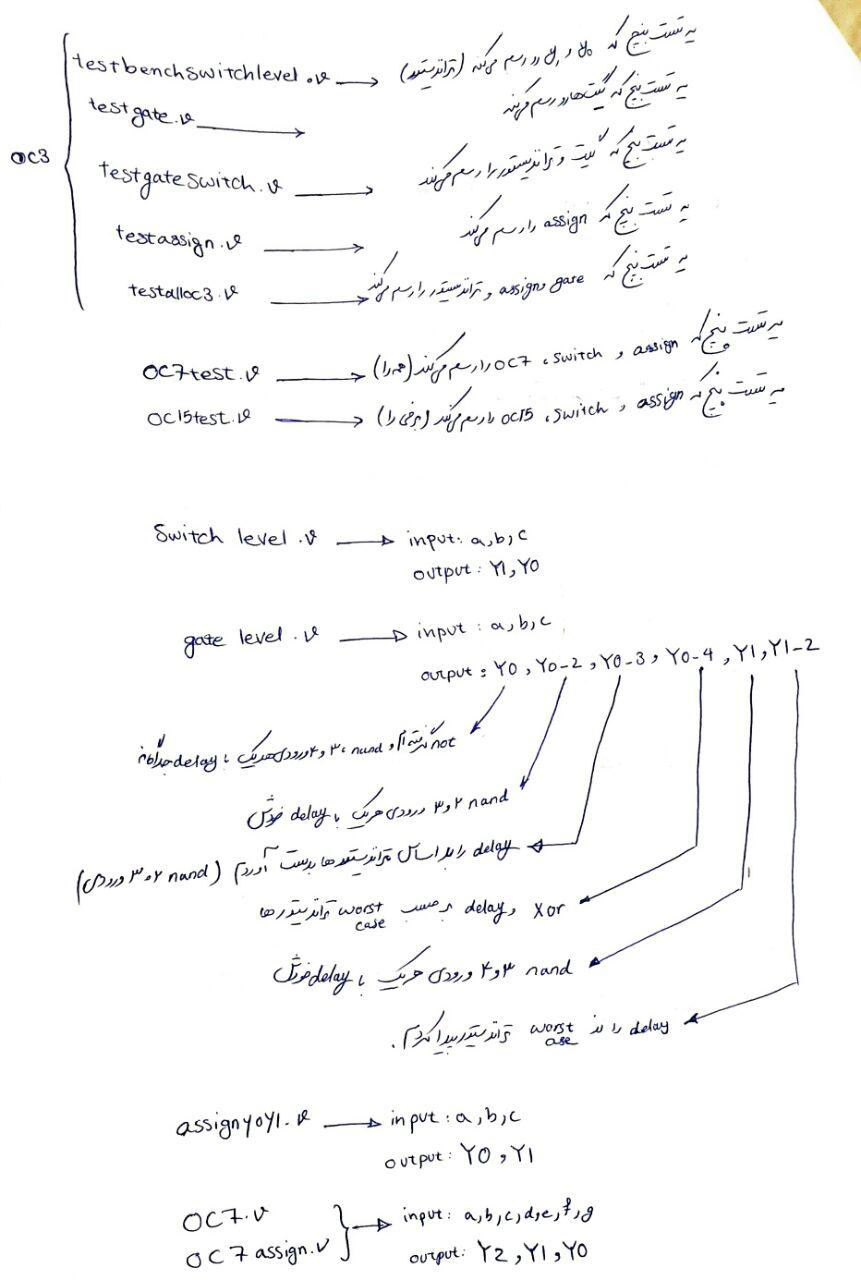 testbenchswitchlevel.v → یه تست بنچ که y0 و y1 رو رسم میکنه (ترانزیستور)
testgate.v → یه تست بنچ که گیت ها رو رسم میکند
OC3
testgateswitch.v → یه تست بنچ که گیت و ترانزیستور را رسم میکند
testassign.v → یه تست بنچ که assign را رسم میکند
testalloc3.v → یه تست بنچ که gate و assign و ترانزیستور را رسم میکند
OC7test.v → یه تست بنچ که assign و switch، OC7 را رسم میکند (همه را)
OC15test.v → یه تست بنچ که assign و switch، OC15 را رسم میکند (برخی را)
Switch level.v → input: a,b,c
output: Y1,Y0
gate level.v → input: a,b,c
output: Y0, Y0-2, Y0-3, Y0-4, Y1, Y1-2
not گرفته ام و nand، ۳ و ۴ ورودی هر یک با delay جداگانه
nand ۲ و ۳ ورودی هر یک با delay خودش
delay را بر اساس ترانزیستورها بدست آوردم (nand ۲ و ۳ ورودی)
xor و delay بر حسب worst case ترانزیستورها
nand ۳ و ۴ ورودی هر یک با delay خودش
delay را از worst case ترانزیستور پیدا کردم.
assignY0Y1.v → input: a,b,c
output: Y0, Y1
OC7.v
OC7assign.v → input: a,b,c,d,e,f,g
output: Y2,Y1,Y0